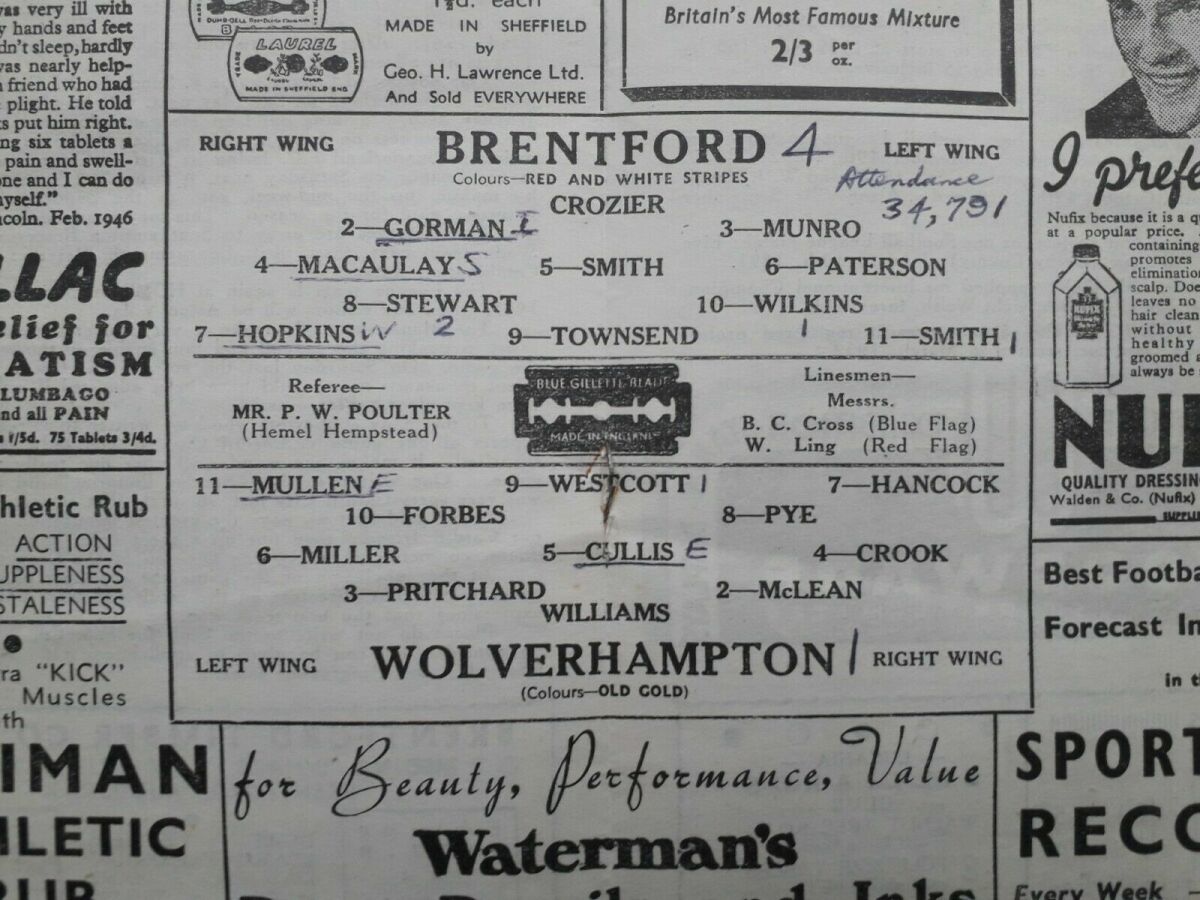 was very ill with
hands and feet
dn't sleep, hardly
was nearly help-
friend who had
plight. He told
put him right.
ng six tablets a
pain and swell-
one and I can do
myself."
ncoln. Feb. 1946
LLAC
elief for
ATISM
LUMBAGO
nd all PAIN
1/5d. 75 Tablets 3/4d.
LAUREL
TRADE MARK
MADE IN SHEFFIELD ENG
each
MADE IN SHEFFIELD
by
Geo. H. Lawrence Ltd.
And Sold EVERYWHERE
Britain's Most Famous Mixture
2/3 per oz.
RIGHT WING BRENTFORD 4 LEFT WING
Colours—RED AND WHITE STRIPES
Attendance
34,791
CROZIER
2—GORMAN I 3—MUNRO
4—MACAULAY S 5—SMITH 6—PATERSON
8—STEWART 10—WILKINS
7—HOPKINS W 2 9—TOWNSEND 1 11—SMITH 1
Referee—
MR. P. W. POULTER
(Hemel Hempstead)
BLUE GILLETTE BLADE
MADE IN ENGLAND
Linesmen—
Messrs.
B. C. Cross (Blue Flag)
W. Ling (Red Flag)
11—MULLEN E 9—WESTCOTT 1 7—HANCOCK
10—FORBES 8—PYE
6—MILLER 5—CULLIS E 4—CROOK
3—PRITCHARD 2—McLEAN
WILLIAMS
LEFT WING WOLVERHAMPTON 1 RIGHT WING
(Colours—OLD GOLD)
I prefe
Nufix because it is a qu
at a popular price.
containing
promotes
elimination
scalp. Doe
leaves no
hair clean
without
healthy
groomed a
always be
NUFIX
NU
QUALITY DRESSING
Walden & Co. (Nufix)
Best Footba
Forecast In
in t
SPORT
RECO
Every Week —
thletic Rub
ACTION
UPPLENESS
STALENESS
ra "KICK"
Muscles
th
IMAN
HLETIC
RUB
for Beauty, Performance, Value
Waterman's
Inks